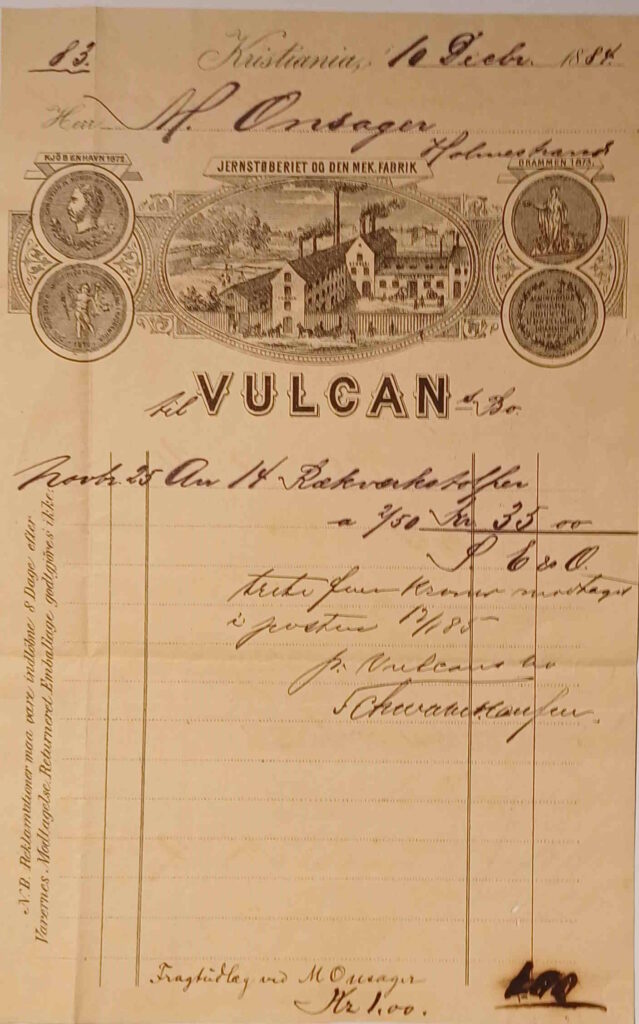 83.
Kristiania, 10 Decbr. 1884.
Herr M. Onsager
Holmestrand
KJØBENHAVN 1872.
JERNSTØBERIET OG DEN MEK. FABRIK
DRAMMEN 1873.
til VULCAN s Bo.
Novbr. 25 An 14 Rækværkstolper
a 2/50 Kr 35 00
S. E & O.
treti fem Kroner modtaget
i posten
p. Vulcans bo
N.B. Reklamationer maa være indløbne 8 Dage efter
Varernes Modtagelse. Returneret Emballage godtgjøres ikke.
Fragtudlæg ved M Onsager
Kr 1.00.